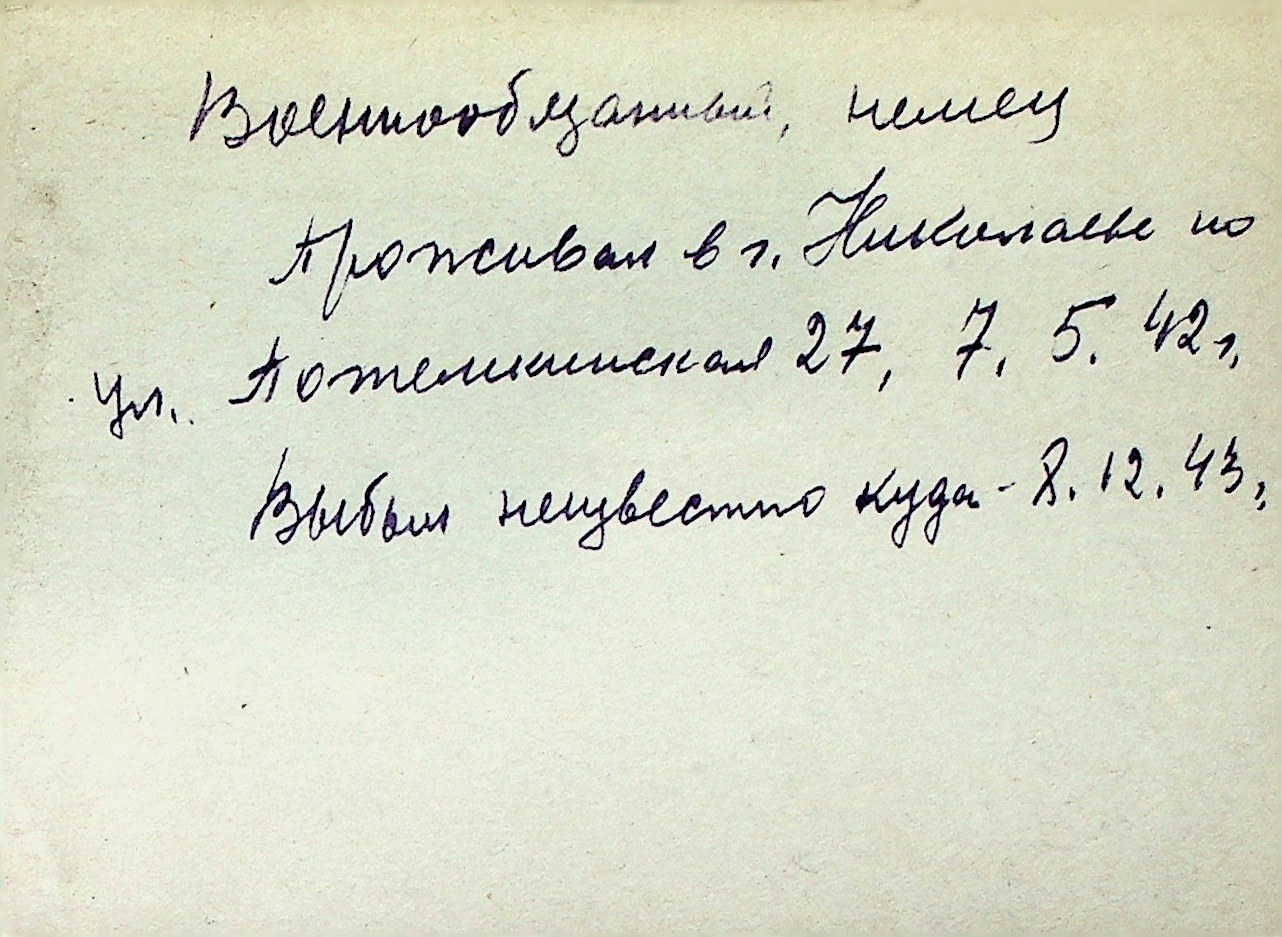 Военнообязанный, немец
Проживал в г. Николаеве по
ул. Потемкинская 27, 7. 5. 42 г.
Выбыл неизвестно куда - 8. 12. 43 г.